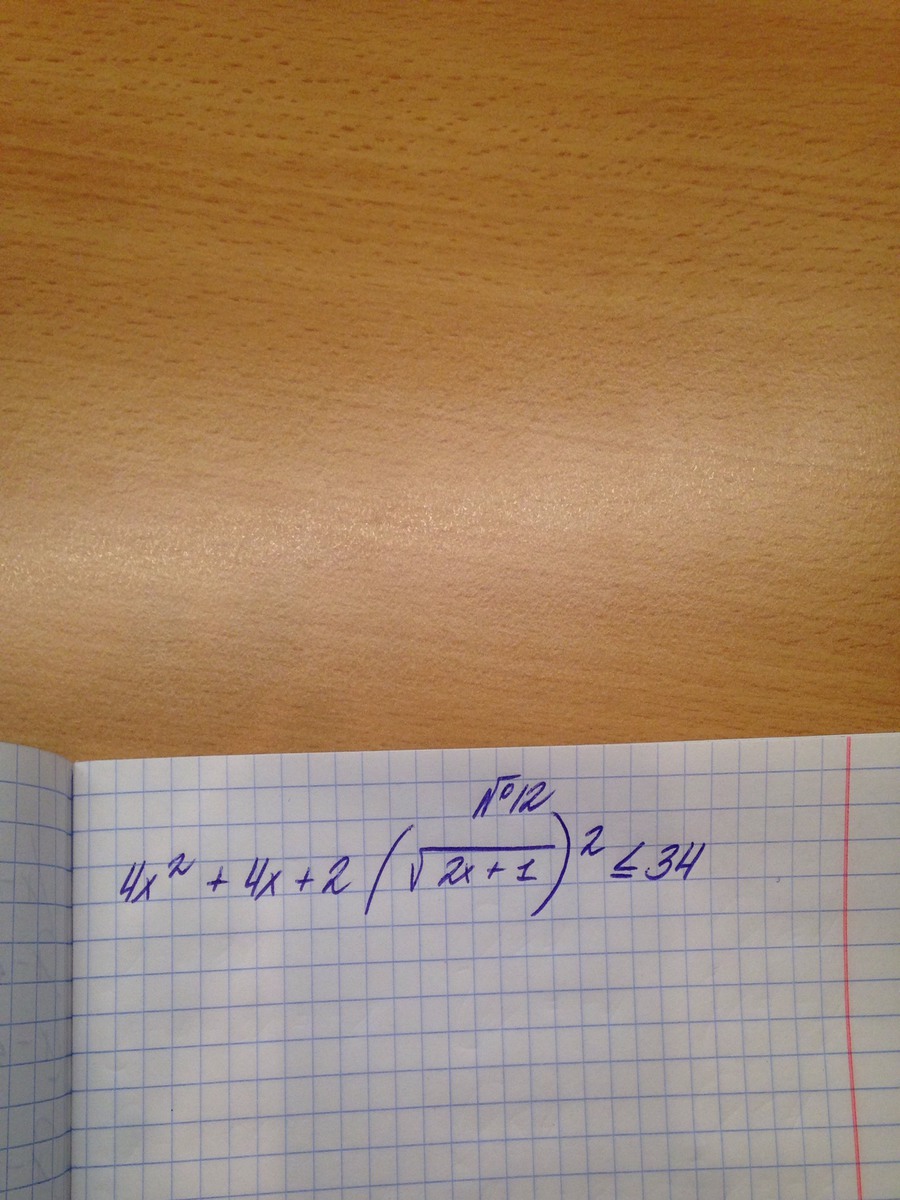 №12
4x² + 4x + 2 (√(2x + 1))² ≤ 34